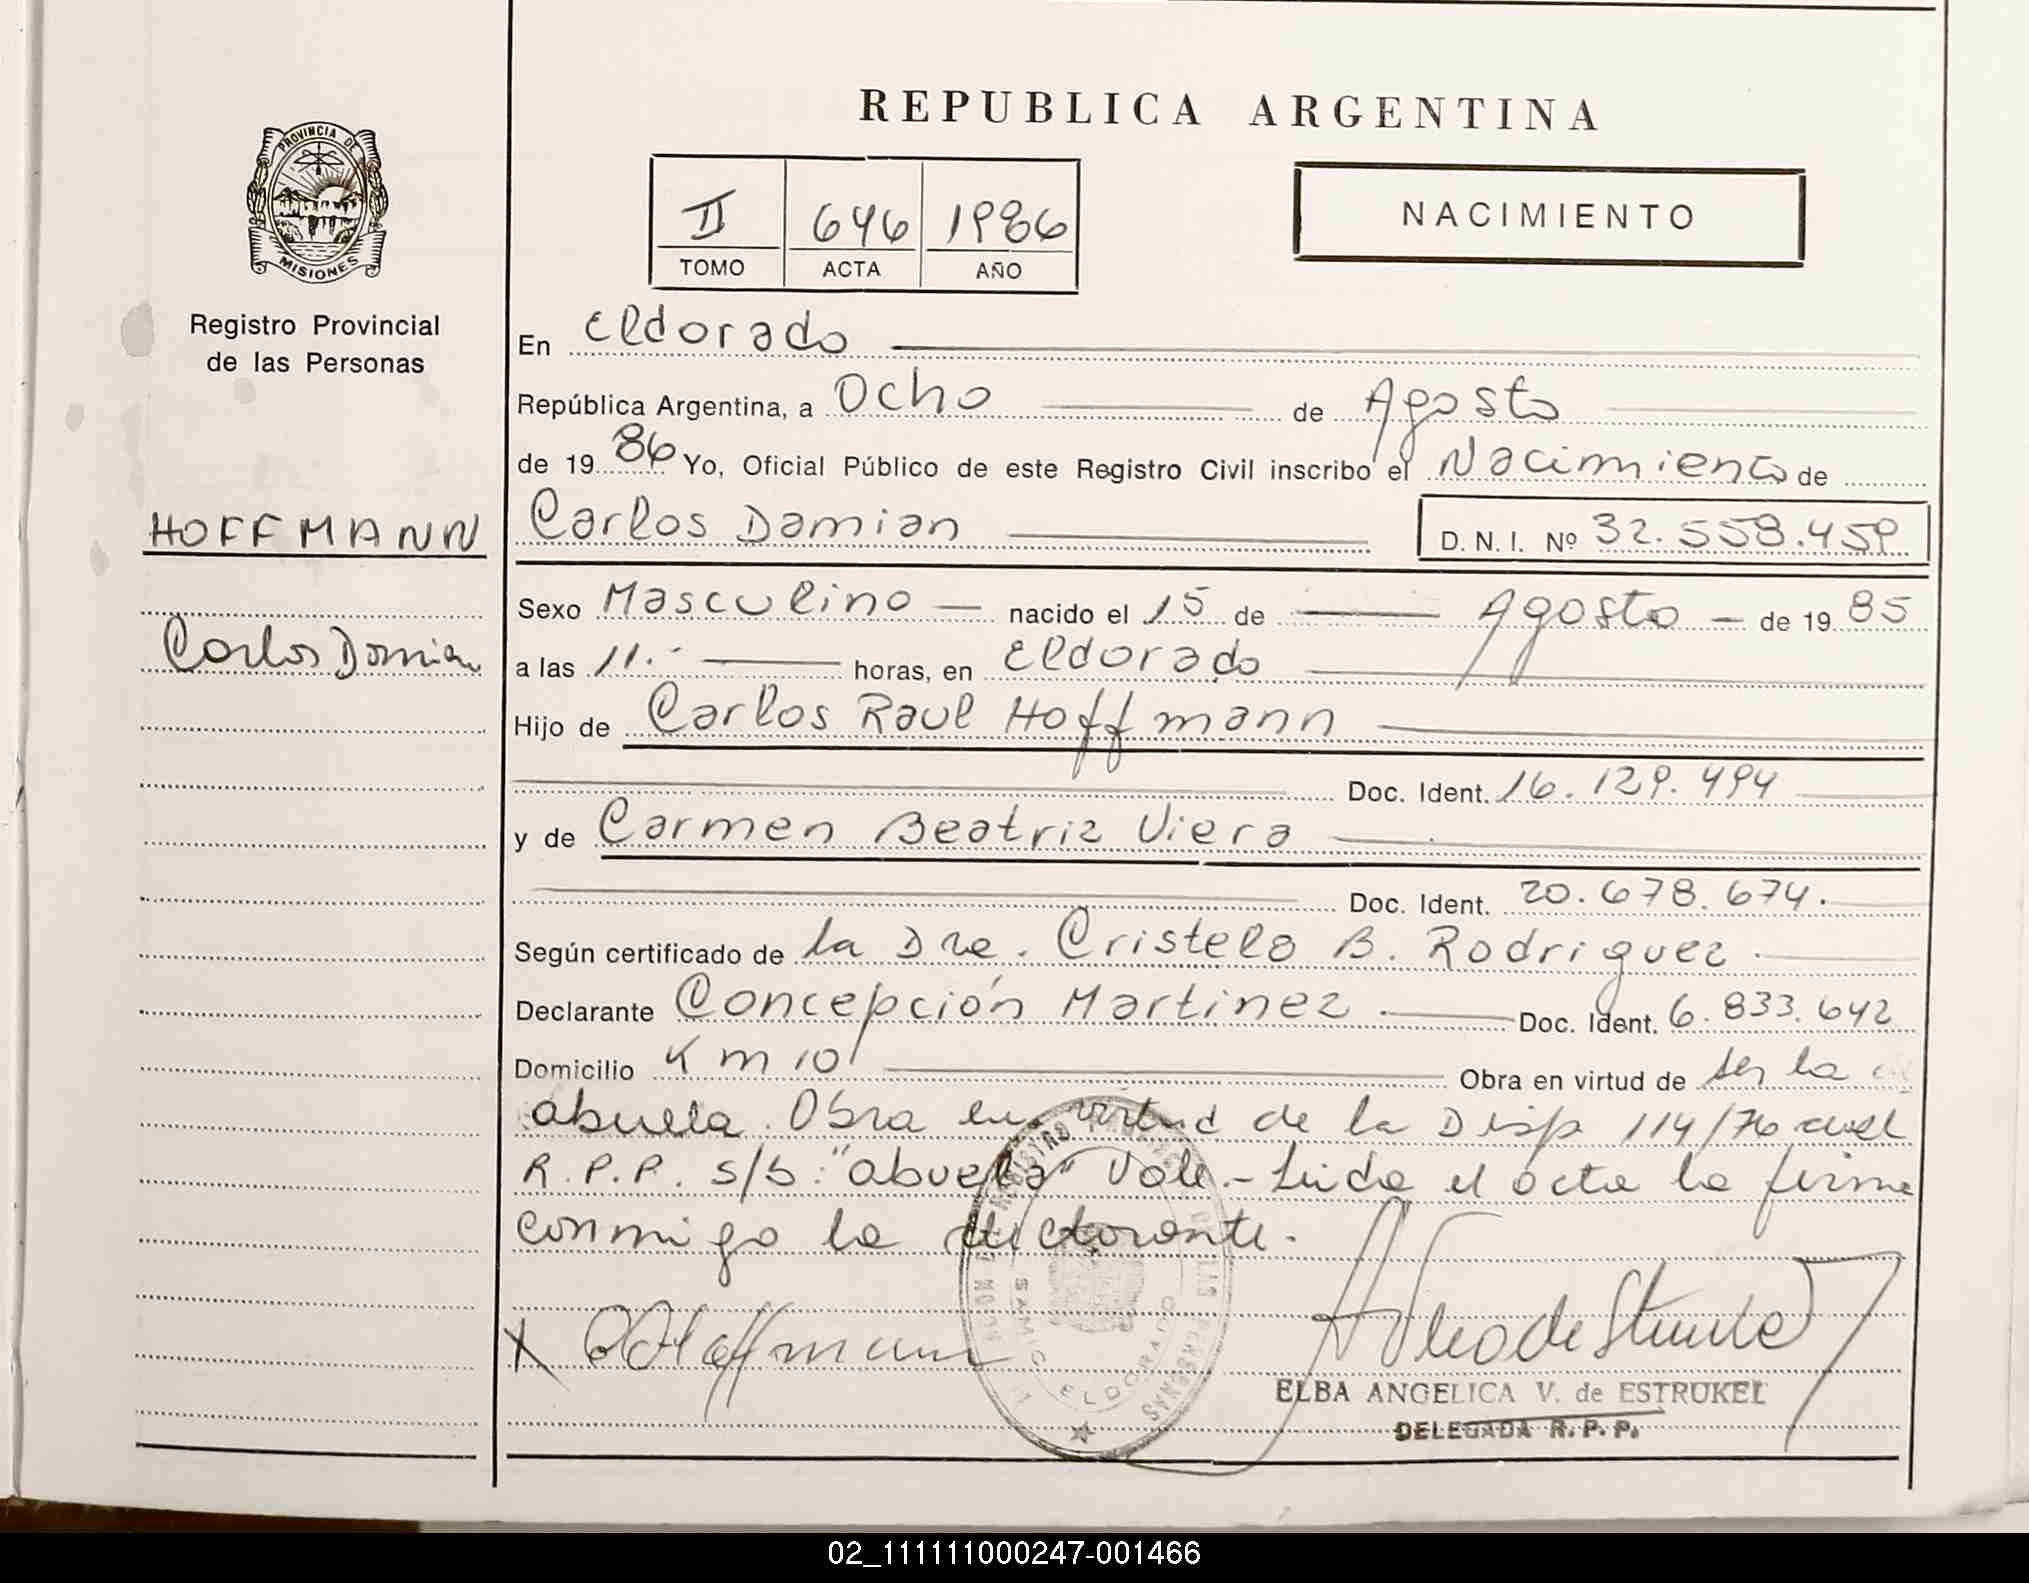 REPUBLICA ARGENTINA
PROVINCIA DE
MISIONES
II 646 1986
TOMO ACTA AÑO
NACIMIENTO
Registro Provincial
de las Personas
En Eldorado
República Argentina, a Ocho de Agosto
de 1986 Yo, Oficial Público de este Registro Civil inscribo el Nacimiento de
HOFFMANN
Carlos Damian D. N. I. Nº 32.558.459
Sexo Masculino nacido el 15 de Agosto de 1985
Carlos Damian
a las 11.- horas, en Eldorado
Hijo de Carlos Raul Hoffmann
Doc. Ident. 16.129.494
y de Carmen Beatriz Viera
Doc. Ident. 20.678.674.
Según certificado de la Dra. Cristela B. Rodriguez.
Declarante Concepción Martinez. Doc. Ident. 6.833.642
Domicilio Km 10 Obra en virtud de ser la
abuela. Obra en virtud de la Disp 114/76 del
R.P.P. s/b: "abuela" Vale.- Leida el acta la firma
conmigo la declarante.
X C Hoffmann
SAMIC ELDORADO
ELBA ANGELICA V. de ESTRUKEL
DELEGADA R. P. P.
02_111111000247-001466